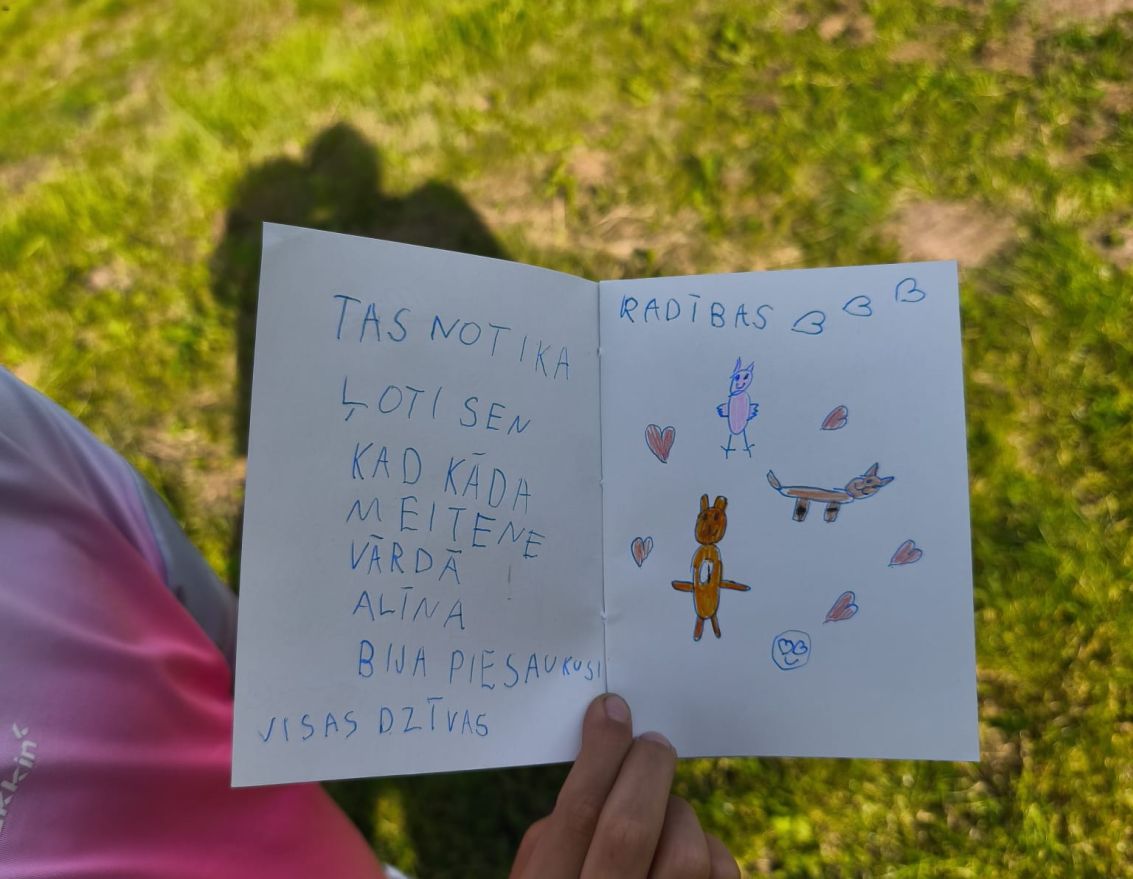 TAS NOTIKA
ĻOTI SEN
KAD KĀDA
MEITENE
VĀRDĀ
ALĪNA
BIJA PIESAUKUSI
VISAS DZĪVAS
RADĪBAS